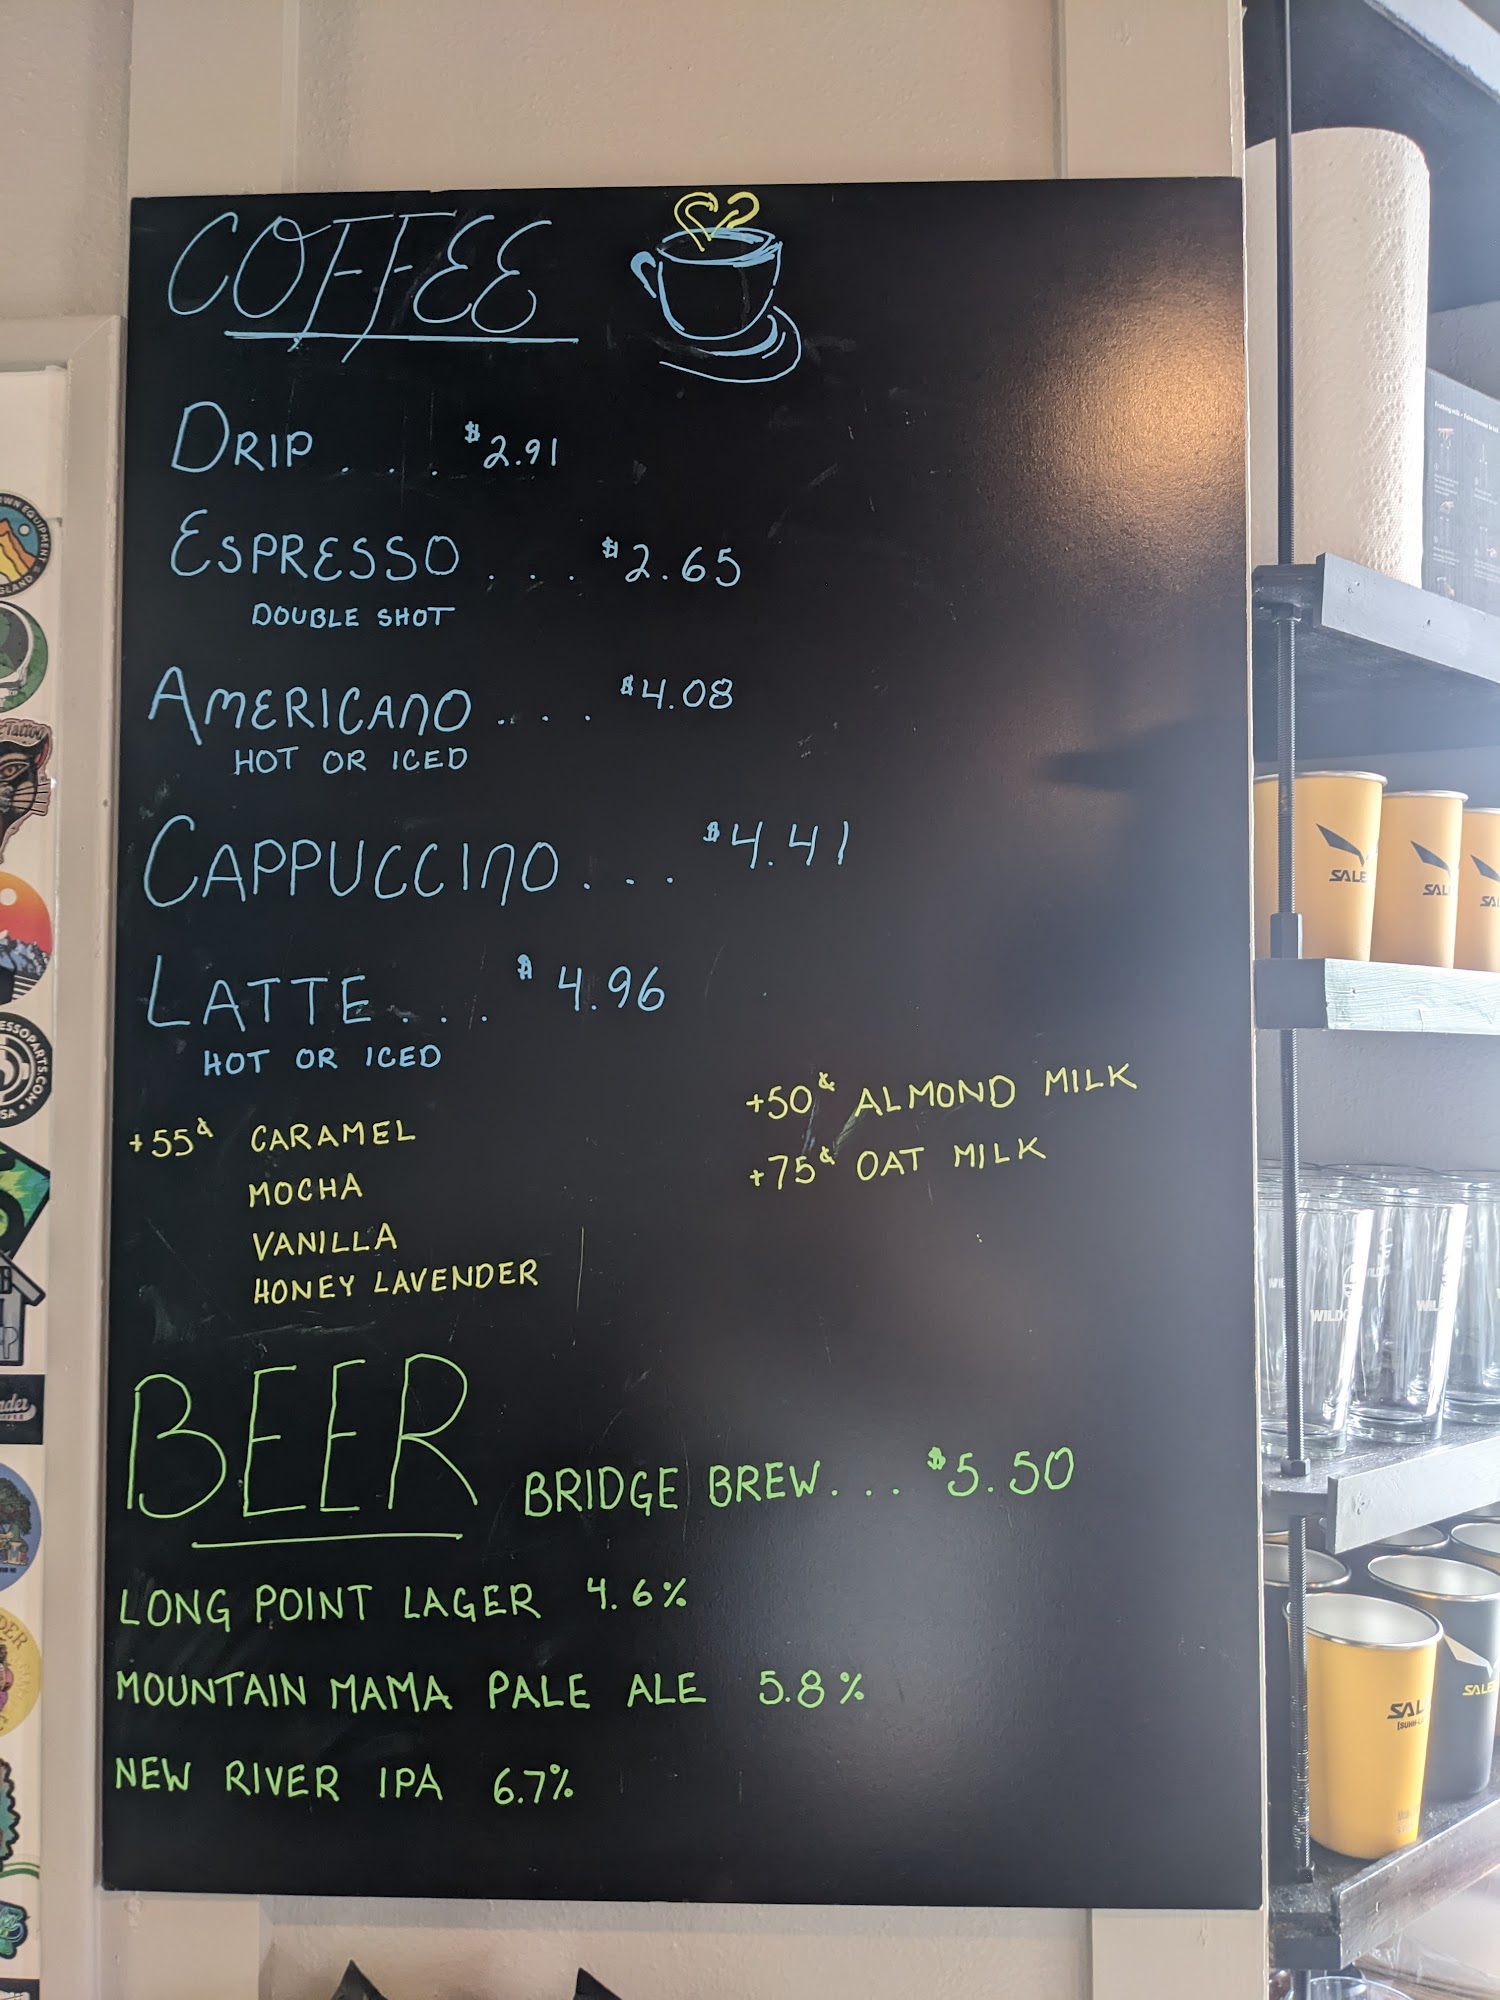 COFFEE
DRIP . . . . $2.91
ESPRESSO . . . $2.65
DOUBLE SHOT
AMERICANO . . . . $4.08
HOT OR ICED
CAPPUCCINO . . . $4.41
LATTE . . . . $4.96
HOT OR ICED
+55¢ CARAMEL
MOCHA
VANILLA
HONEY LAVENDER
+50¢ ALMOND MILK
+75¢ OAT MILK
BEER
BRIDGE BREW . . . $5.50
LONG POINT LAGER 4.6%
MOUNTAIN MAMA PALE ALE 5.8%
NEW RIVER IPA 6.7%
SALE
SAL
SA
WILD
WIL
SAL
SALE